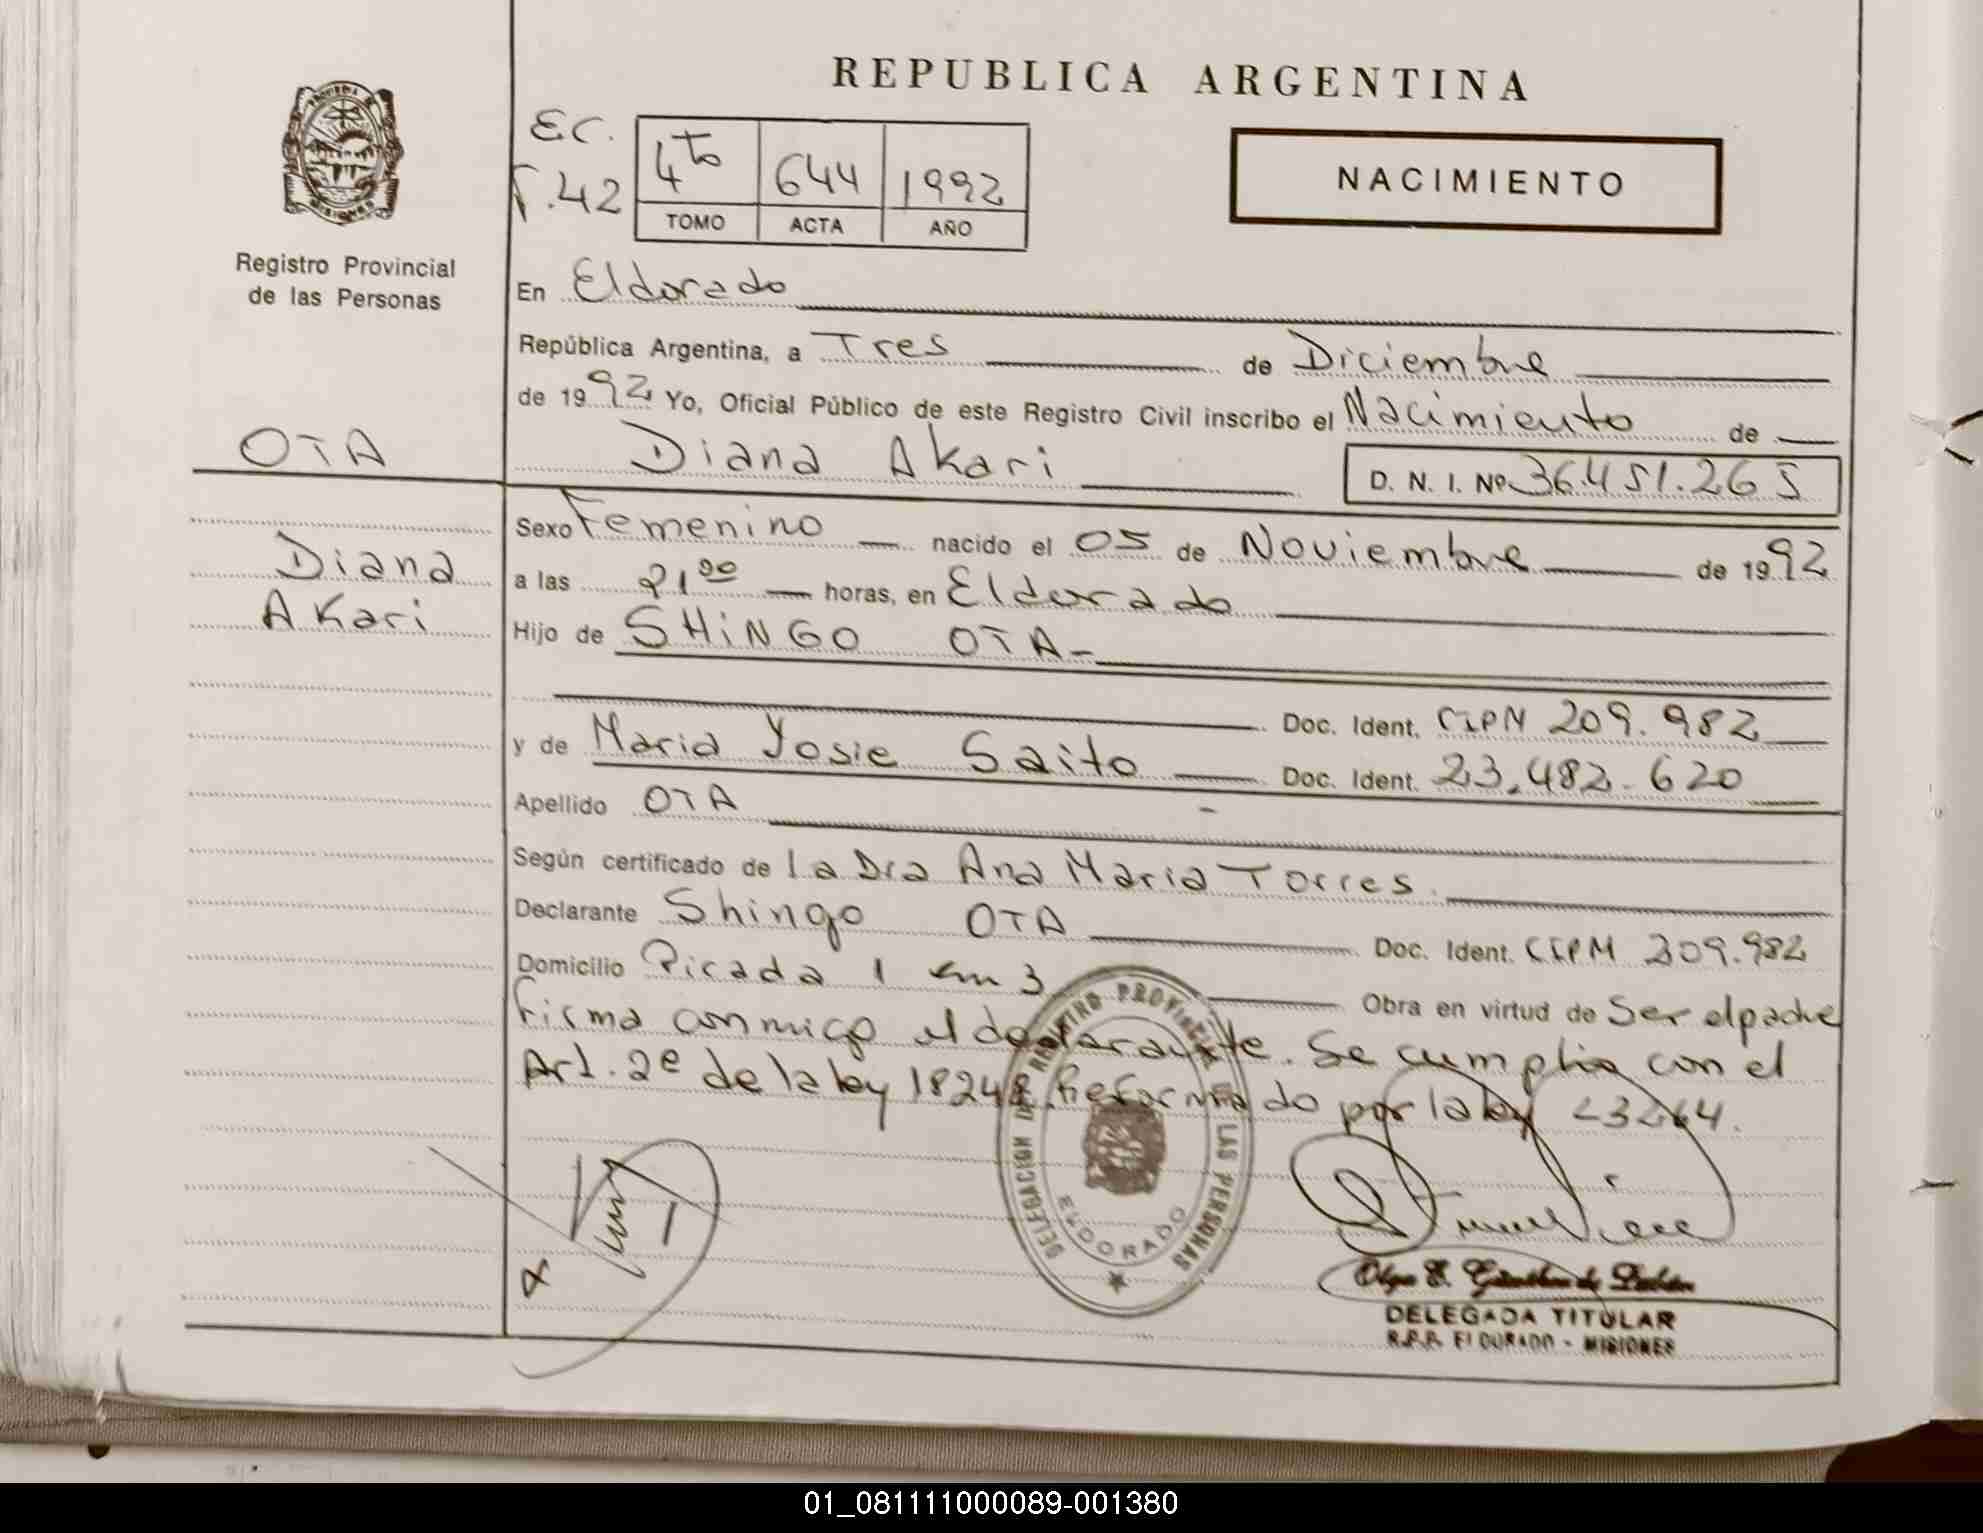 REPUBLICA ARGENTINA
E.C.
F.42
4to 644 1992
TOMO ACTA AÑO
NACIMIENTO
MISIONES
Registro Provincial
de las Personas
En Eldorado
República Argentina, a Tres de Diciembre
de 1992 Yo, Oficial Público de este Registro Civil inscribo el Nacimiento de
Diana Akari D. N. I. Nº 36.451.265
OTA
Diana
Akari
Sexo Femenino nacido el 05 de Noviembre de 1992
a las 21 00 horas, en Eldorado
Hijo de SHINGO OTA-
Doc. Ident. CIPM 209.982
y de Maria Yosie Saito Doc. Ident. 23.482.620
Apellido OTA
Según certificado de la Dra Ana Maria Torres.
Declarante Shingo OTA Doc. Ident. CIPM 209.982
Domicilio Picada 1 km 3 Obra en virtud de Ser el padre
Firma conmigo el declarante. Se cumplio con el
Art. 2º de la ley 18248 Reformado por la ley 23264.
DELEGACION DEL REGISTRO PROVINCIAL DE LAS PERSONAS
ELDORADO
Olga E. de
DELEGADA TITULAR
R.P.P. ELDORADO - MISIONES
01_081111000089-001380